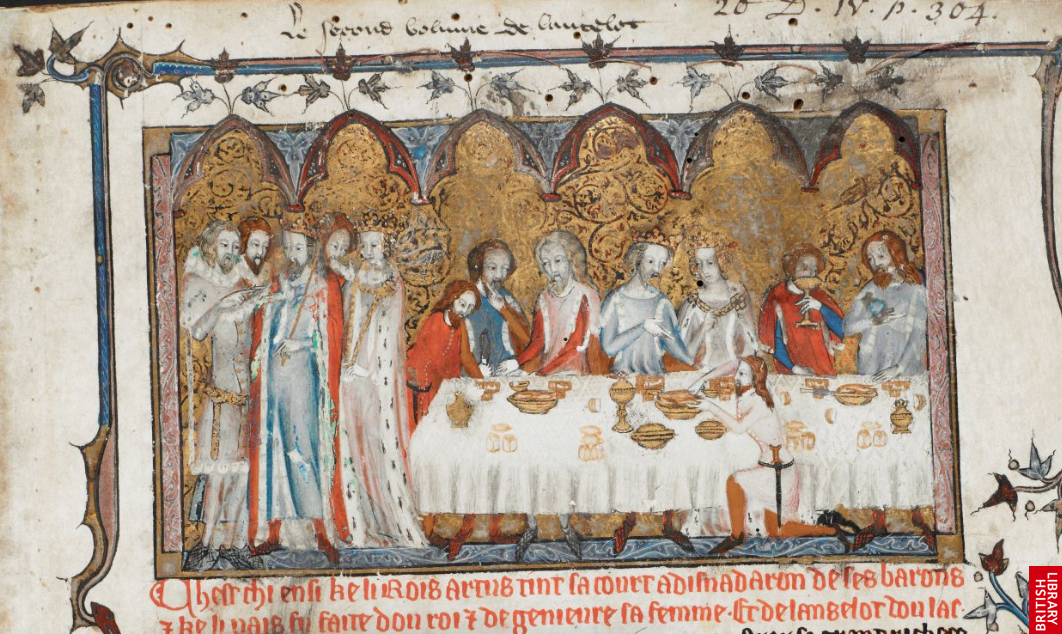 Le second volume de lancelot
20 D. IV. p. 304.
Chest chi ensi ke li Rois artus tint sa court a disnadaron de ses barons
⁊ ke li pais fu faite dou roi ⁊ de genieure sa femme. Et de lanselot dou lac.
BRITISH
LIBRARY